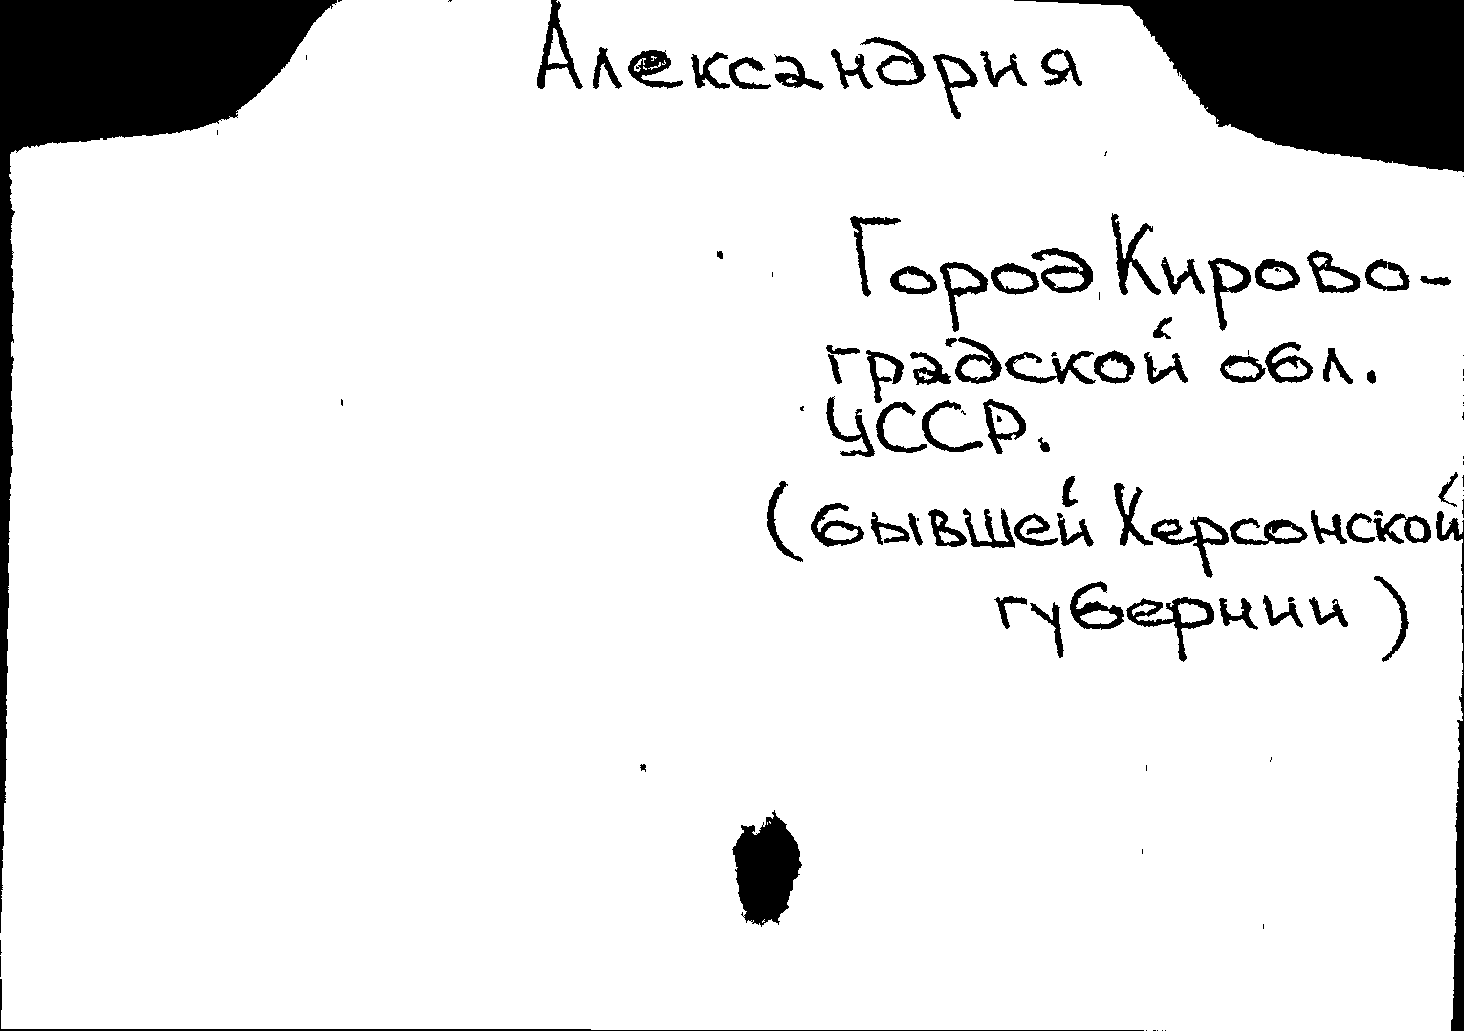 Александрия
Город Кирово-
градской обл.
УССР.
(бывшей Херсонской
губернии)